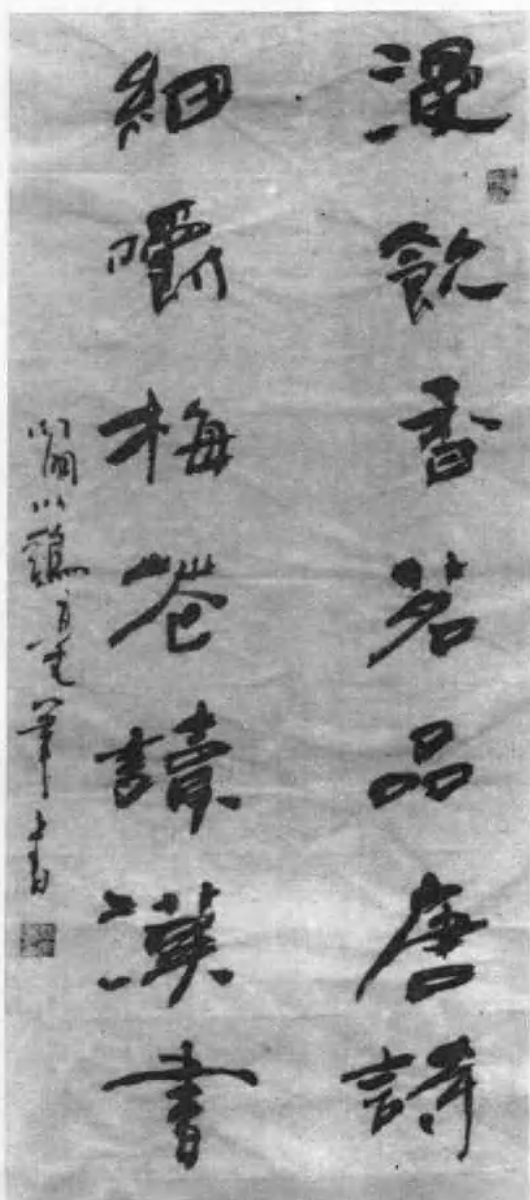 漫飲香茗品唐詩
細嚼梅花讀漢書